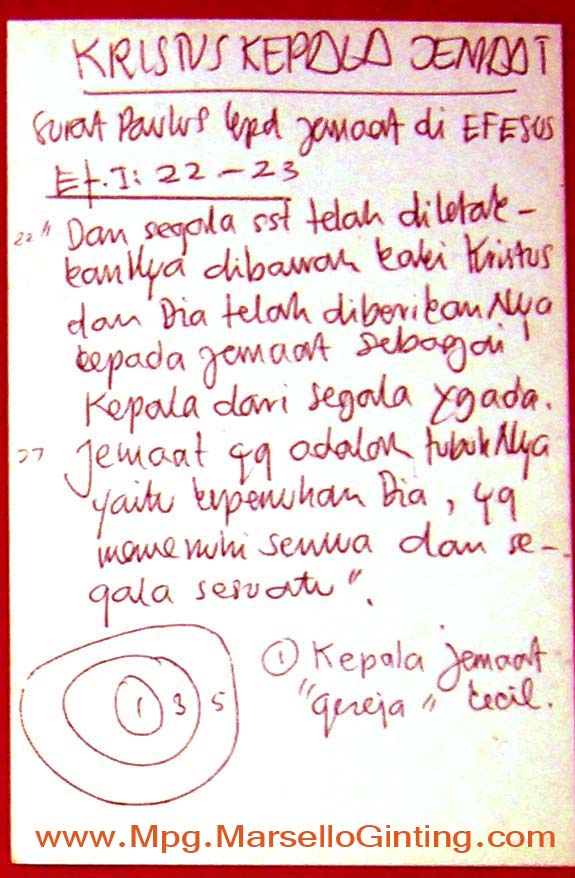 KRISTUS KEPALA JEMAAT
Surat Paulus kpd jemaat di EFESUS
Ef. I: 22 - 23
22 " Dan segala sst telah diletak-
kanNya dibawah kaki Kristus
dan Dia telah diberikanNya
kepada jemaat sebagai
Kepala dari segala yg ada.
Jemaat yg adalah tubuhNya
yaitu kepenuhan Dia, yg
memenuhi semua dan se-
gala sesuatu".
1 3 5
① Kepala jemaat
"gereja" kecil.
www.Mpg.MarselloGinting.com